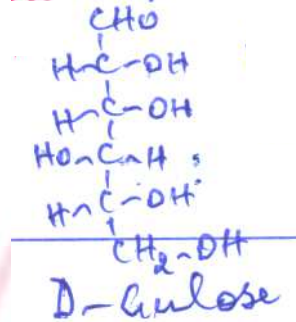 CHO
H-C-OH
H-C-OH
HO-C-H ;
H-C-OH
CH₂-OH
D-Gulose